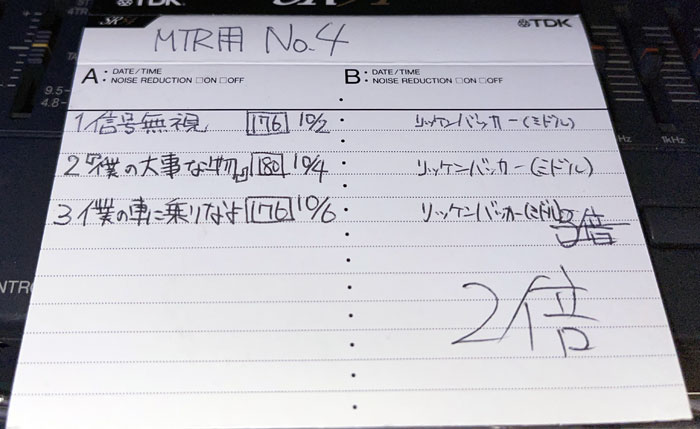 TDK
SR
MTR用 No.4
TDK
A: DATE/TIME
NOISE REDUCTION □ON □OFF
B: DATE/TIME
NOISE REDUCTION □ON □OFF
1 信号無視 176 10/2 リッケンバッカー(ミドル)
2『僕の大事な物』 180 10/4 リッケンバッカー(ミドル)
3 僕の車に乗りなよ 176 10/6 リッケンバッカー(ミドル)
2倍
9.5
4.8
kHz
1kHz
NTR